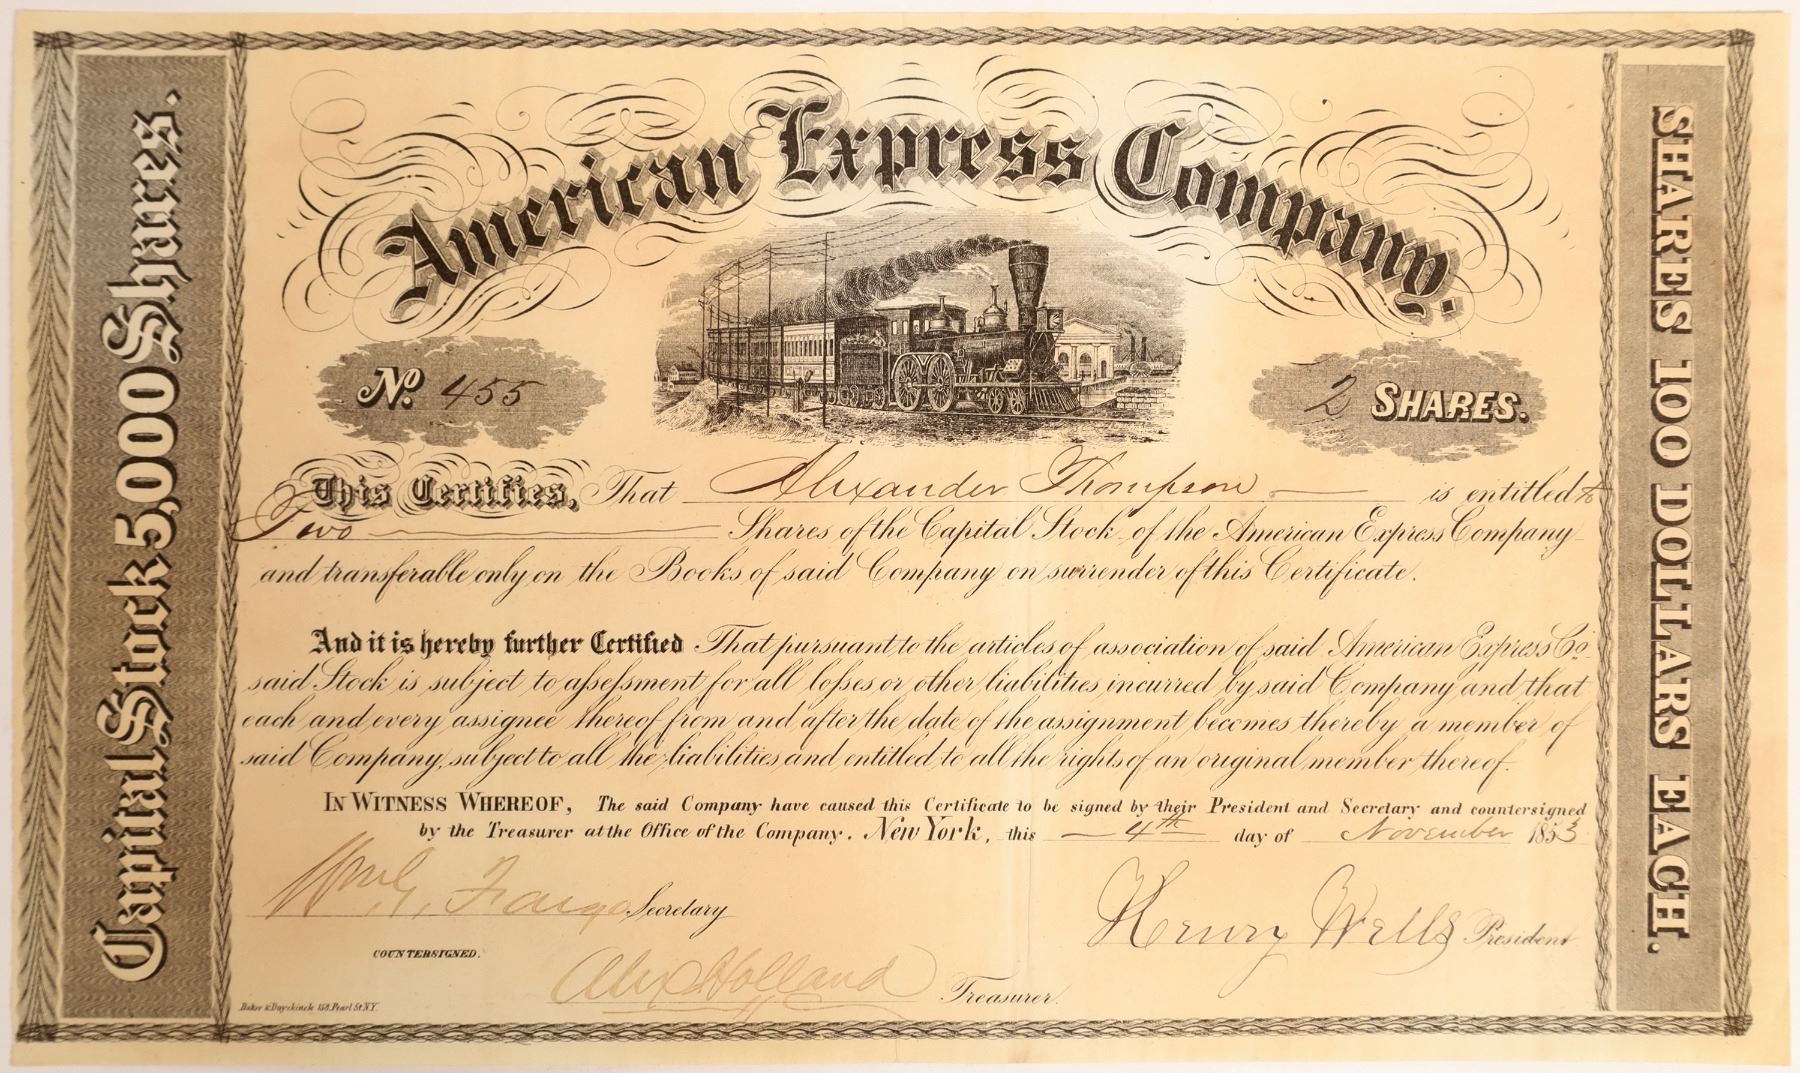 American Express Company.
Capital Stock 5,000 Shares.
SHARES 100 DOLLARS EACH.
No. 455
2 SHARES.
This Certifies, That Alexander Thompson is entitled to
Two Shares of the Capital Stock of the American Express Company
and transferable only on the Books of said Company on surrender of this Certificate.
And it is hereby further Certified That pursuant to the articles of association of said American Express Co.
said Stock is subject to assessment for all losses or other liabilities incurred by said Company and that
each and every assignee thereof from and after the date of the assignment becomes thereby a member of
said Company, subject to all the liabilities and entitled to all the rights of an original member thereof.
IN WITNESS WHEREOF, The said Company have caused this Certificate to be signed by their President and Secretary and countersigned
by the Treasurer at the Office of the Company. New York, this 4th day of November 1853
Wm. G. Fargo Secretary
Henry Wells President
COUNTERSIGNED.
Alex Holland Treasurer.
Baker & Duyckinck 158 Pearl St. N.Y.